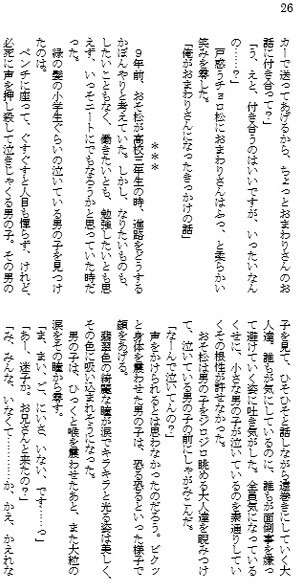 26
カーで送ってあげるから、ちょっとおまわりさんのお
話に付き合って?」
「う、えと、付き合うのはいいですが、いったいなん
の……?」
戸惑うチョロ松におまわりさんはふっ、と柔らかい
笑みを零した。
「俺がおまわりさんになったきっかけの話」
***
9年前、おそ松が高校三年生の時、進路をどうする
かぼんやりと考えていた。しかし、なりたいものも、
したいこともなく、働きたいとも、勉強したいとも思
えず、いっそニートにでもなろうかと思っていた時だ
った。
緑の髪の小学生ぐらいの泣いている男の子を見つけ
たのは。
ベンチに座って、ぐすぐすと人目も憚らず、けれど、
必死に声を押し殺して泣きじゃくる男の子。その男の
子を見て、ひそひそと話しながら遠巻きにしていく大
人達、誰もが気にしているのに、誰もが面倒事を嫌っ
て避けていく姿に吐き気がした。全員気になっている
くせに、小さな男の子が泣いているのを素通りしてい
くその根性が許せなかった。
おそ松は男の子をジロジロ眺める大人達を睨みつけ
て、泣いている男の子の前にしゃがみこんだ。
「なーんで泣いてんの?」
声をかけられるとは思わなかったのだろう。ビクッ
と身体を震わせた男の子は、恐る恐るといった様子で
顔をあげる。
翡翠色の綺麗な瞳が涙でキラキラと光る姿は美しく、
その色に吸い込まれそうになった。
男の子は、ひっくと喉を震わせたあと、また大粒の
涙をその瞳から零す。
「ま、まい、ご、にいさ、いない、です……っ」
「あー、迷子か。お兄さんと来たの?」
「み、みんな、いなくて……か、かえ、かえれな